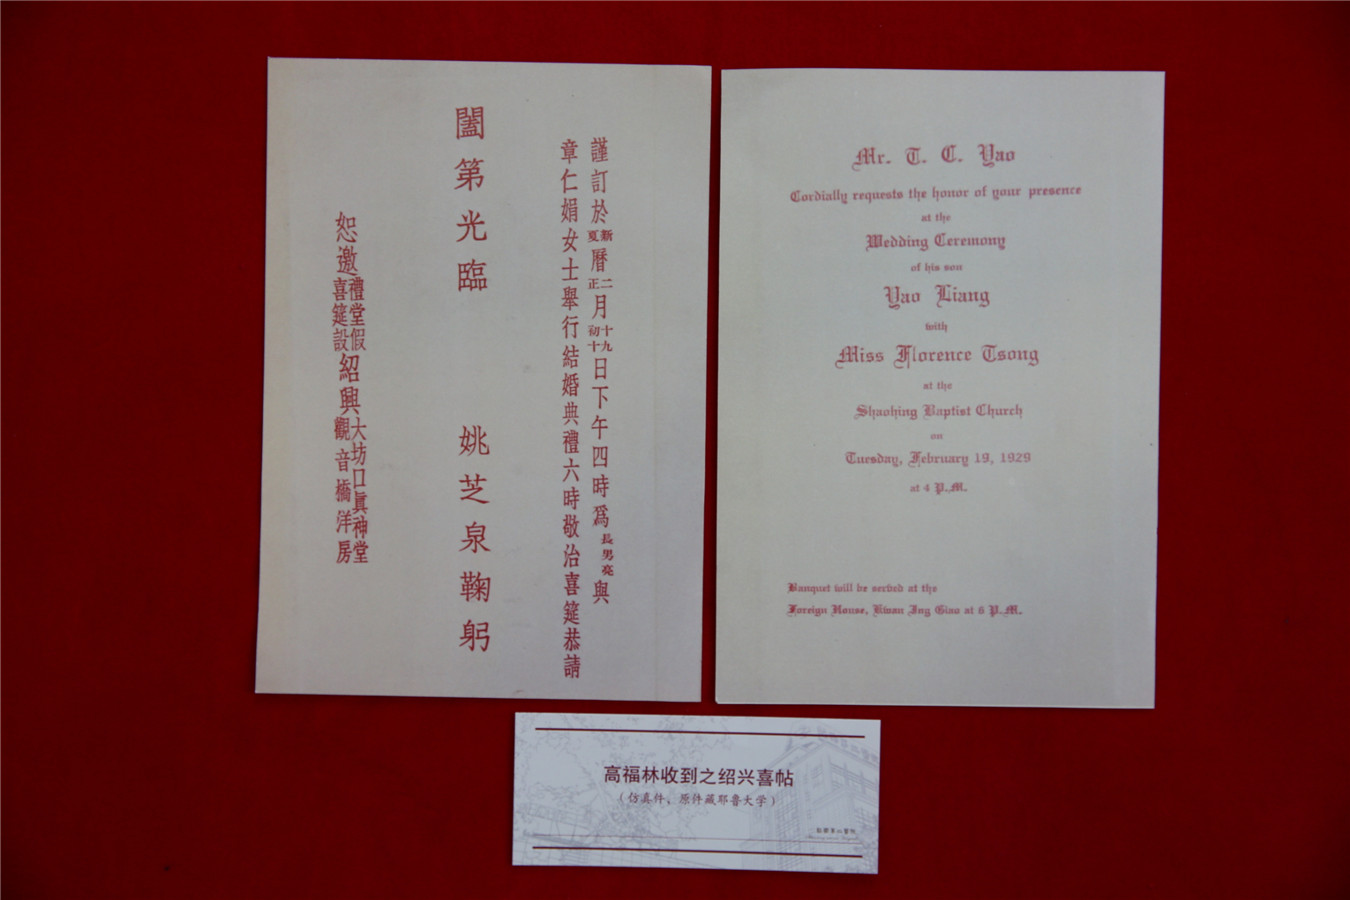 謹訂於新夏曆二正月十九初十日下午四時爲長男亮與
章仁娟女士舉行結婚典禮六時敬治喜筵恭請
闔第光臨
姚芝泉鞠躬
恕邀
禮堂假紹興大坊口眞神堂
喜筵設紹興觀音橋洋房
Mr. T. C. Yao
Cordially requests the honor of your presence
at the
Wedding Ceremony
of his son
Yao Liang
with
Miss Florence Tsong
at the
Shaohing Baptist Church
on
Tuesday, February 19, 1929
at 4 P.M.
Banquet will be served at the
Foreign House, Kwan Ing Giao at 6 P.M.
高福林收到之绍兴喜帖
（仿真件、原件藏耶鲁大学）